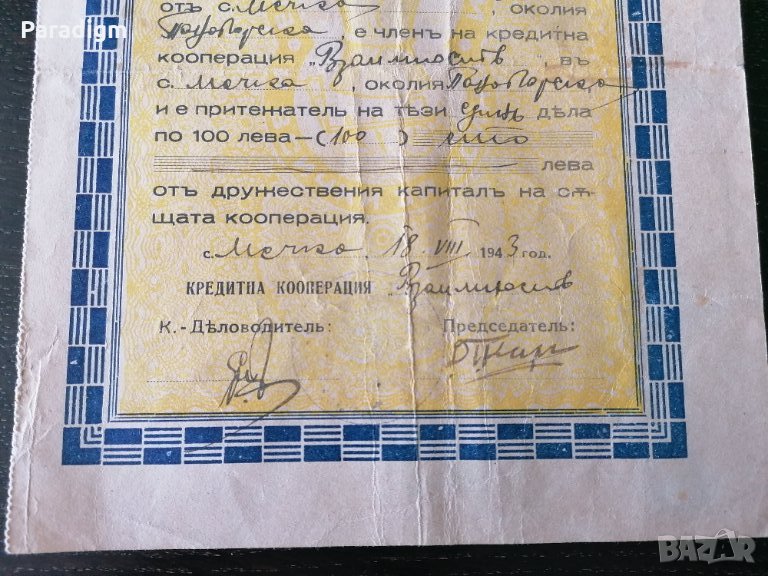 отъ с. Мечка, околия
Paradigm
, е членъ на кредитна
кооперация „Взаимность", въ
с. Мечка, околия
и е притежатель на тѣзи дѣла
по 100 лева — (100) сто
лева
отъ дружествения капиталъ на сѫ-
щата кооперация.
с. Мечка, 18. VIII. 1943 год.
КРЕДИТНА КООПЕРАЦИЯ „Взаимность
К.-Дѣловодитель: Председатель:
BAZAR